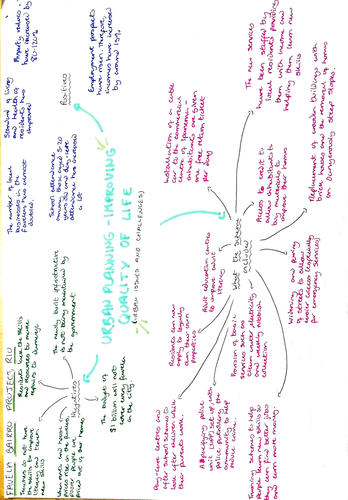 FAVELA BAIRRO PROJECT RIO
URBAN PLANNING - IMPROVING
QUALITY OF LIFE
(URBAN ISSUES AND CHALLENGES)
Positives
Property values
have increased by
80-120%
Employment prospects
have risen. Therefore,
incomes have increased
by around 15%
Standard of living
and health of
residents has
improved
School attendance
among those aged 5-20
years old and day-care
attendance has increased
a lot
The number of local
businesses in these
favelas has almost
doubled.
Negatives
The newly built infrastructure
is not being maintained by
the government
Residents lack the skills
and resources to make
repairs to damage.
Teachers do not have
the skills to improve
literacy and teach
new skills
When rents and house
prices rise in the favelas
poorer people are
priced out of their homes
The budget of
$1 billion will not
cover every favela
in the city.
What the scheme
included
Installation of a cable
car to the commercial
centre of Ipanema -
inhabitants are given
one free return ticket
per day
The new services
have been staffed by
local residents, providing
them with income and
helping them learn new
skills
Access to credit to
allow inhabitants to
buy materials to
improve their homes
Replacement of wooden buildings with
brick houses and the removal of homes
on dangerously steep slopes.
Widening and paving
of streets to allow
easier access (especially
for emergency services)
Adult education centres
to improve adult
literacy
Provision of basic
services such as
clean water, electricity
and weekly rubbish
collection
Residents can now
apply to legally
own their own
properties
Day-care centres and
after school schemes to
look after children while
their parents work.
A Pacifying police
unit (UPP) set up with
police patrolling the
community to help
reduce crime.
Training schemes to help
people learn new skills so
they can find better jobs
and earn more money.